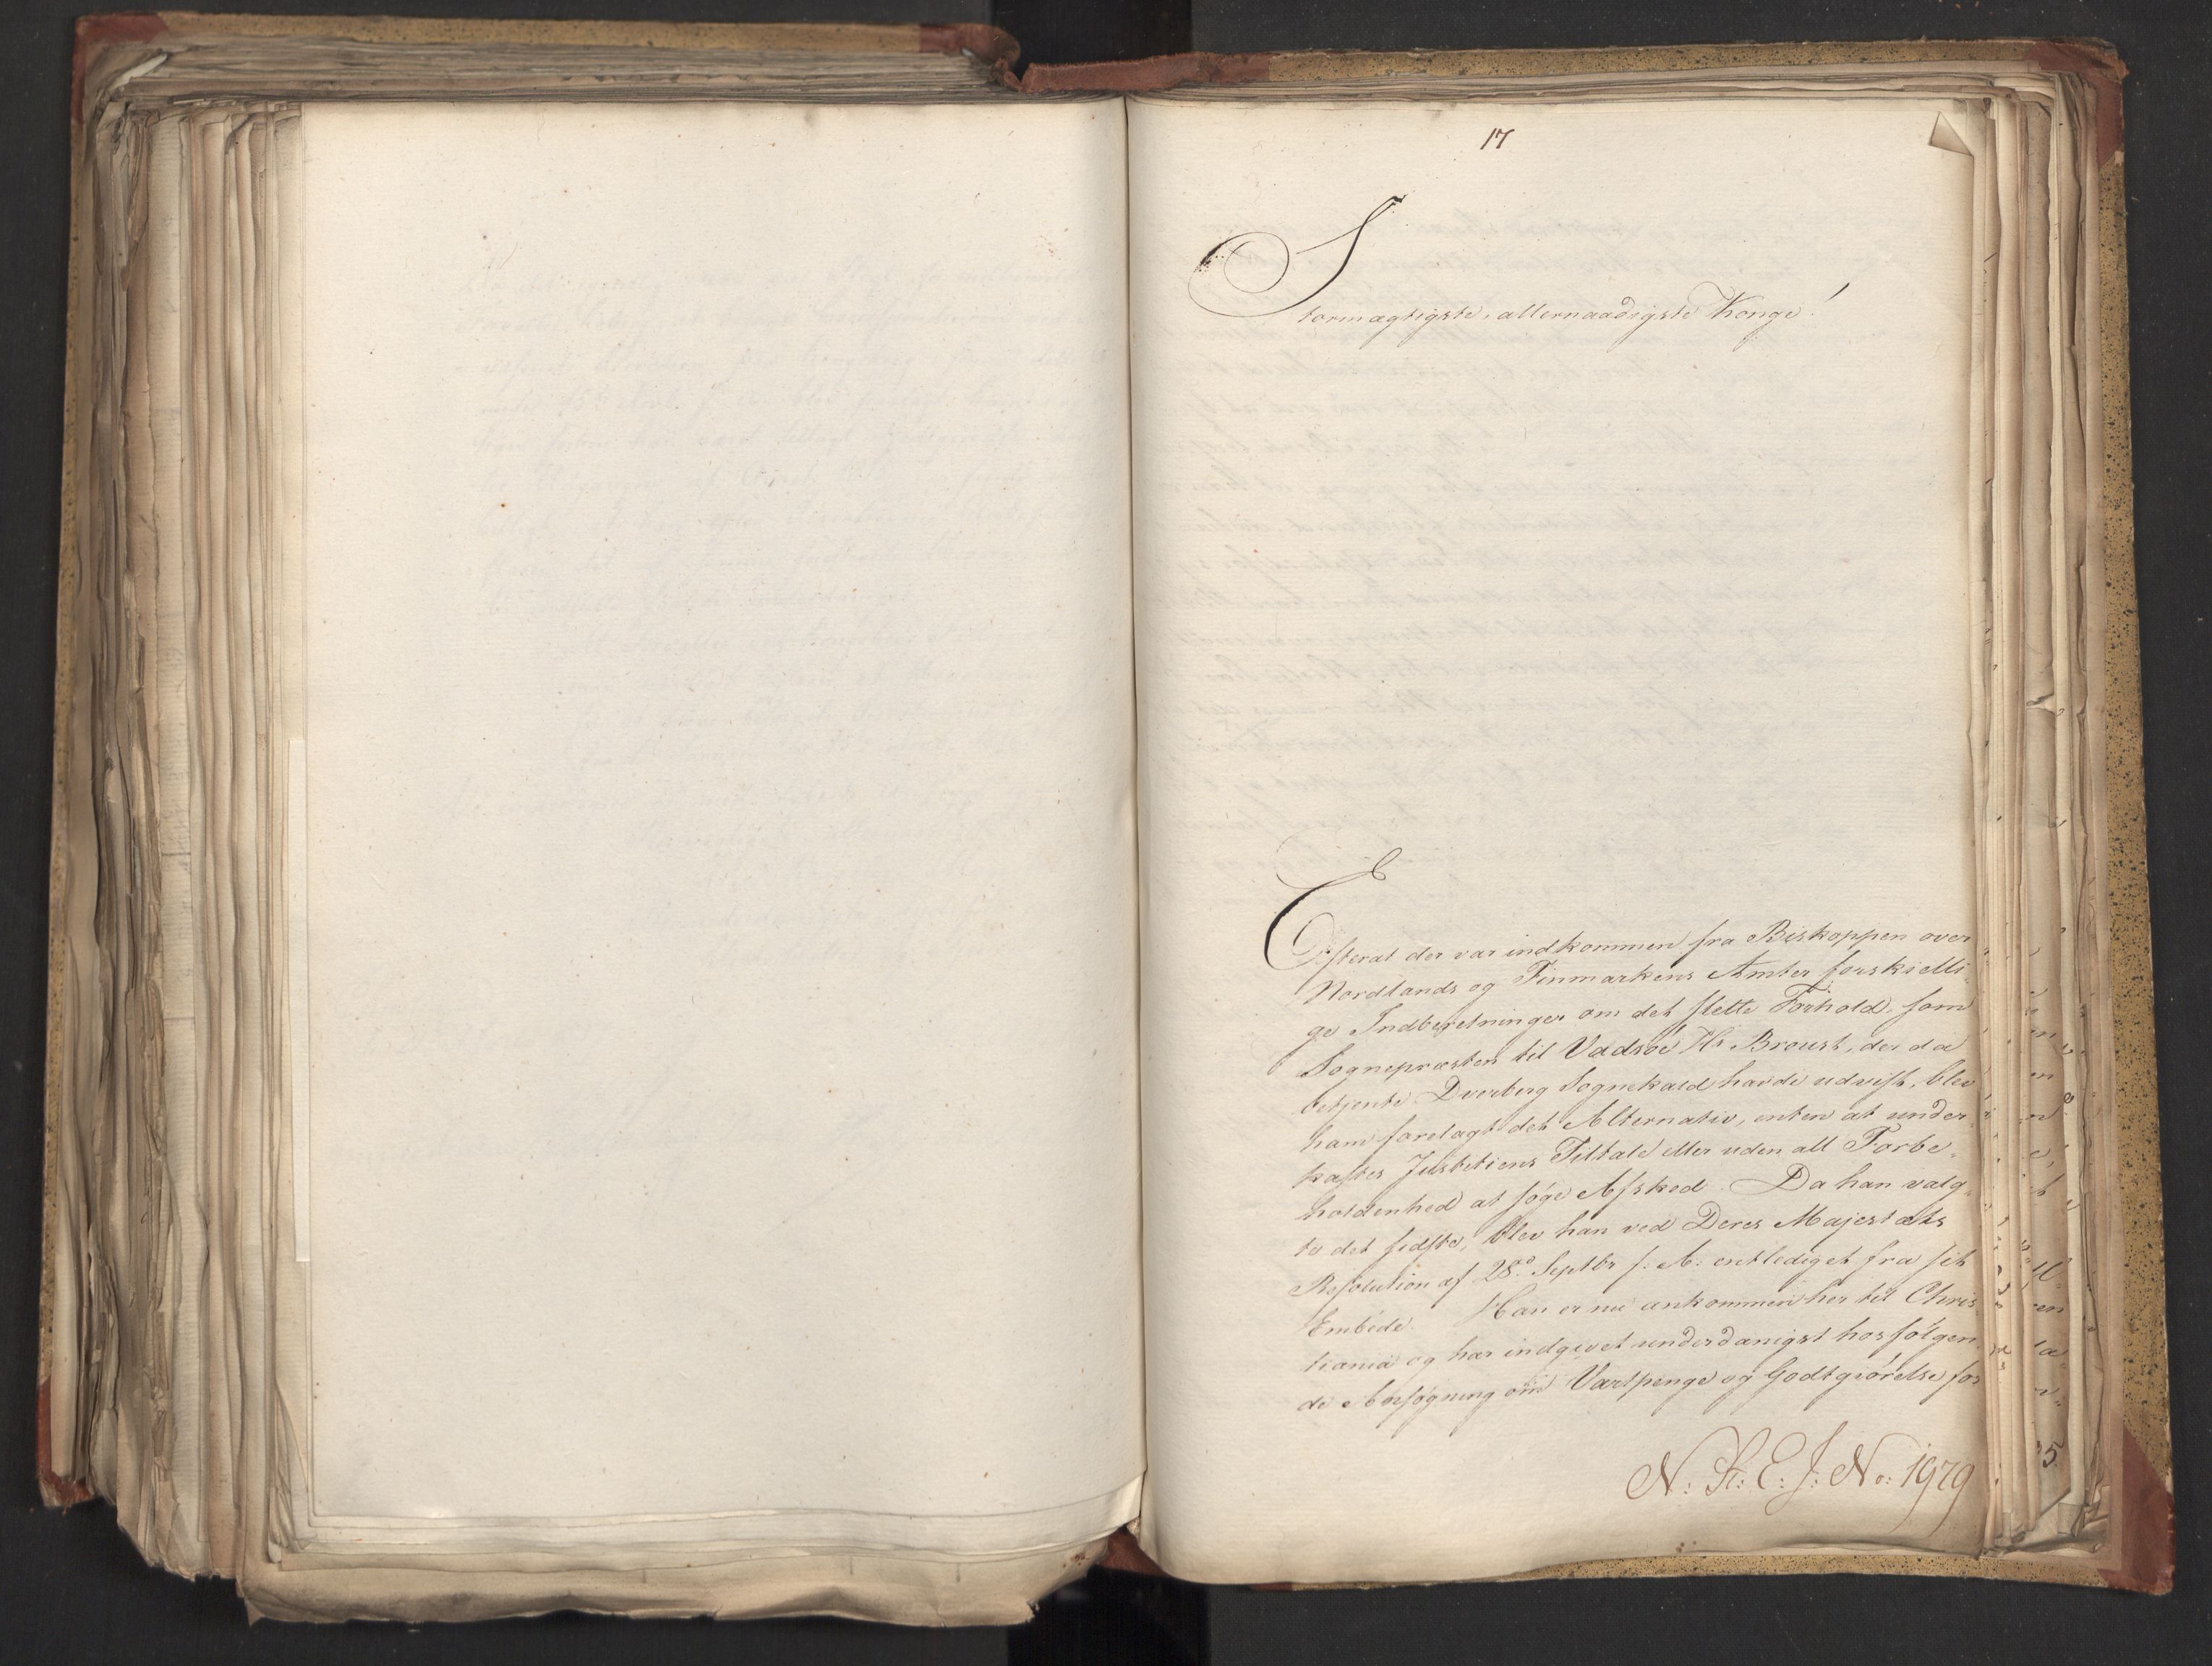 17
Stormægtigste, allernaadigste Konge!
Efterat der var indkommen fra Biskoppen over
Nordlands og Finmarkens Amter forskielli-
ge Indberetninger om det slette Forhold, som
Sognepræsten til Vadsøe Hr Broust, der da
betjente Dverberg Sognekald havde udvist, blev
ham forelagt det Alternativ, enten at under-
kastes Justitiens Tiltale eller uden all Forbe-
holdenhed at søge Afsked. Da han valg-
te det sidste, blev han ved Deres Majestæts
Resolution af 28de Septbr f: A: entlediget fra sit
Embede. Han er nu ankommen her til Chris-
tiania og har indgivet underdanigst hosfølgen-
de Ansøgning om Vartpenge og Godtgiørelse for
N: R: E: J: No: 1979